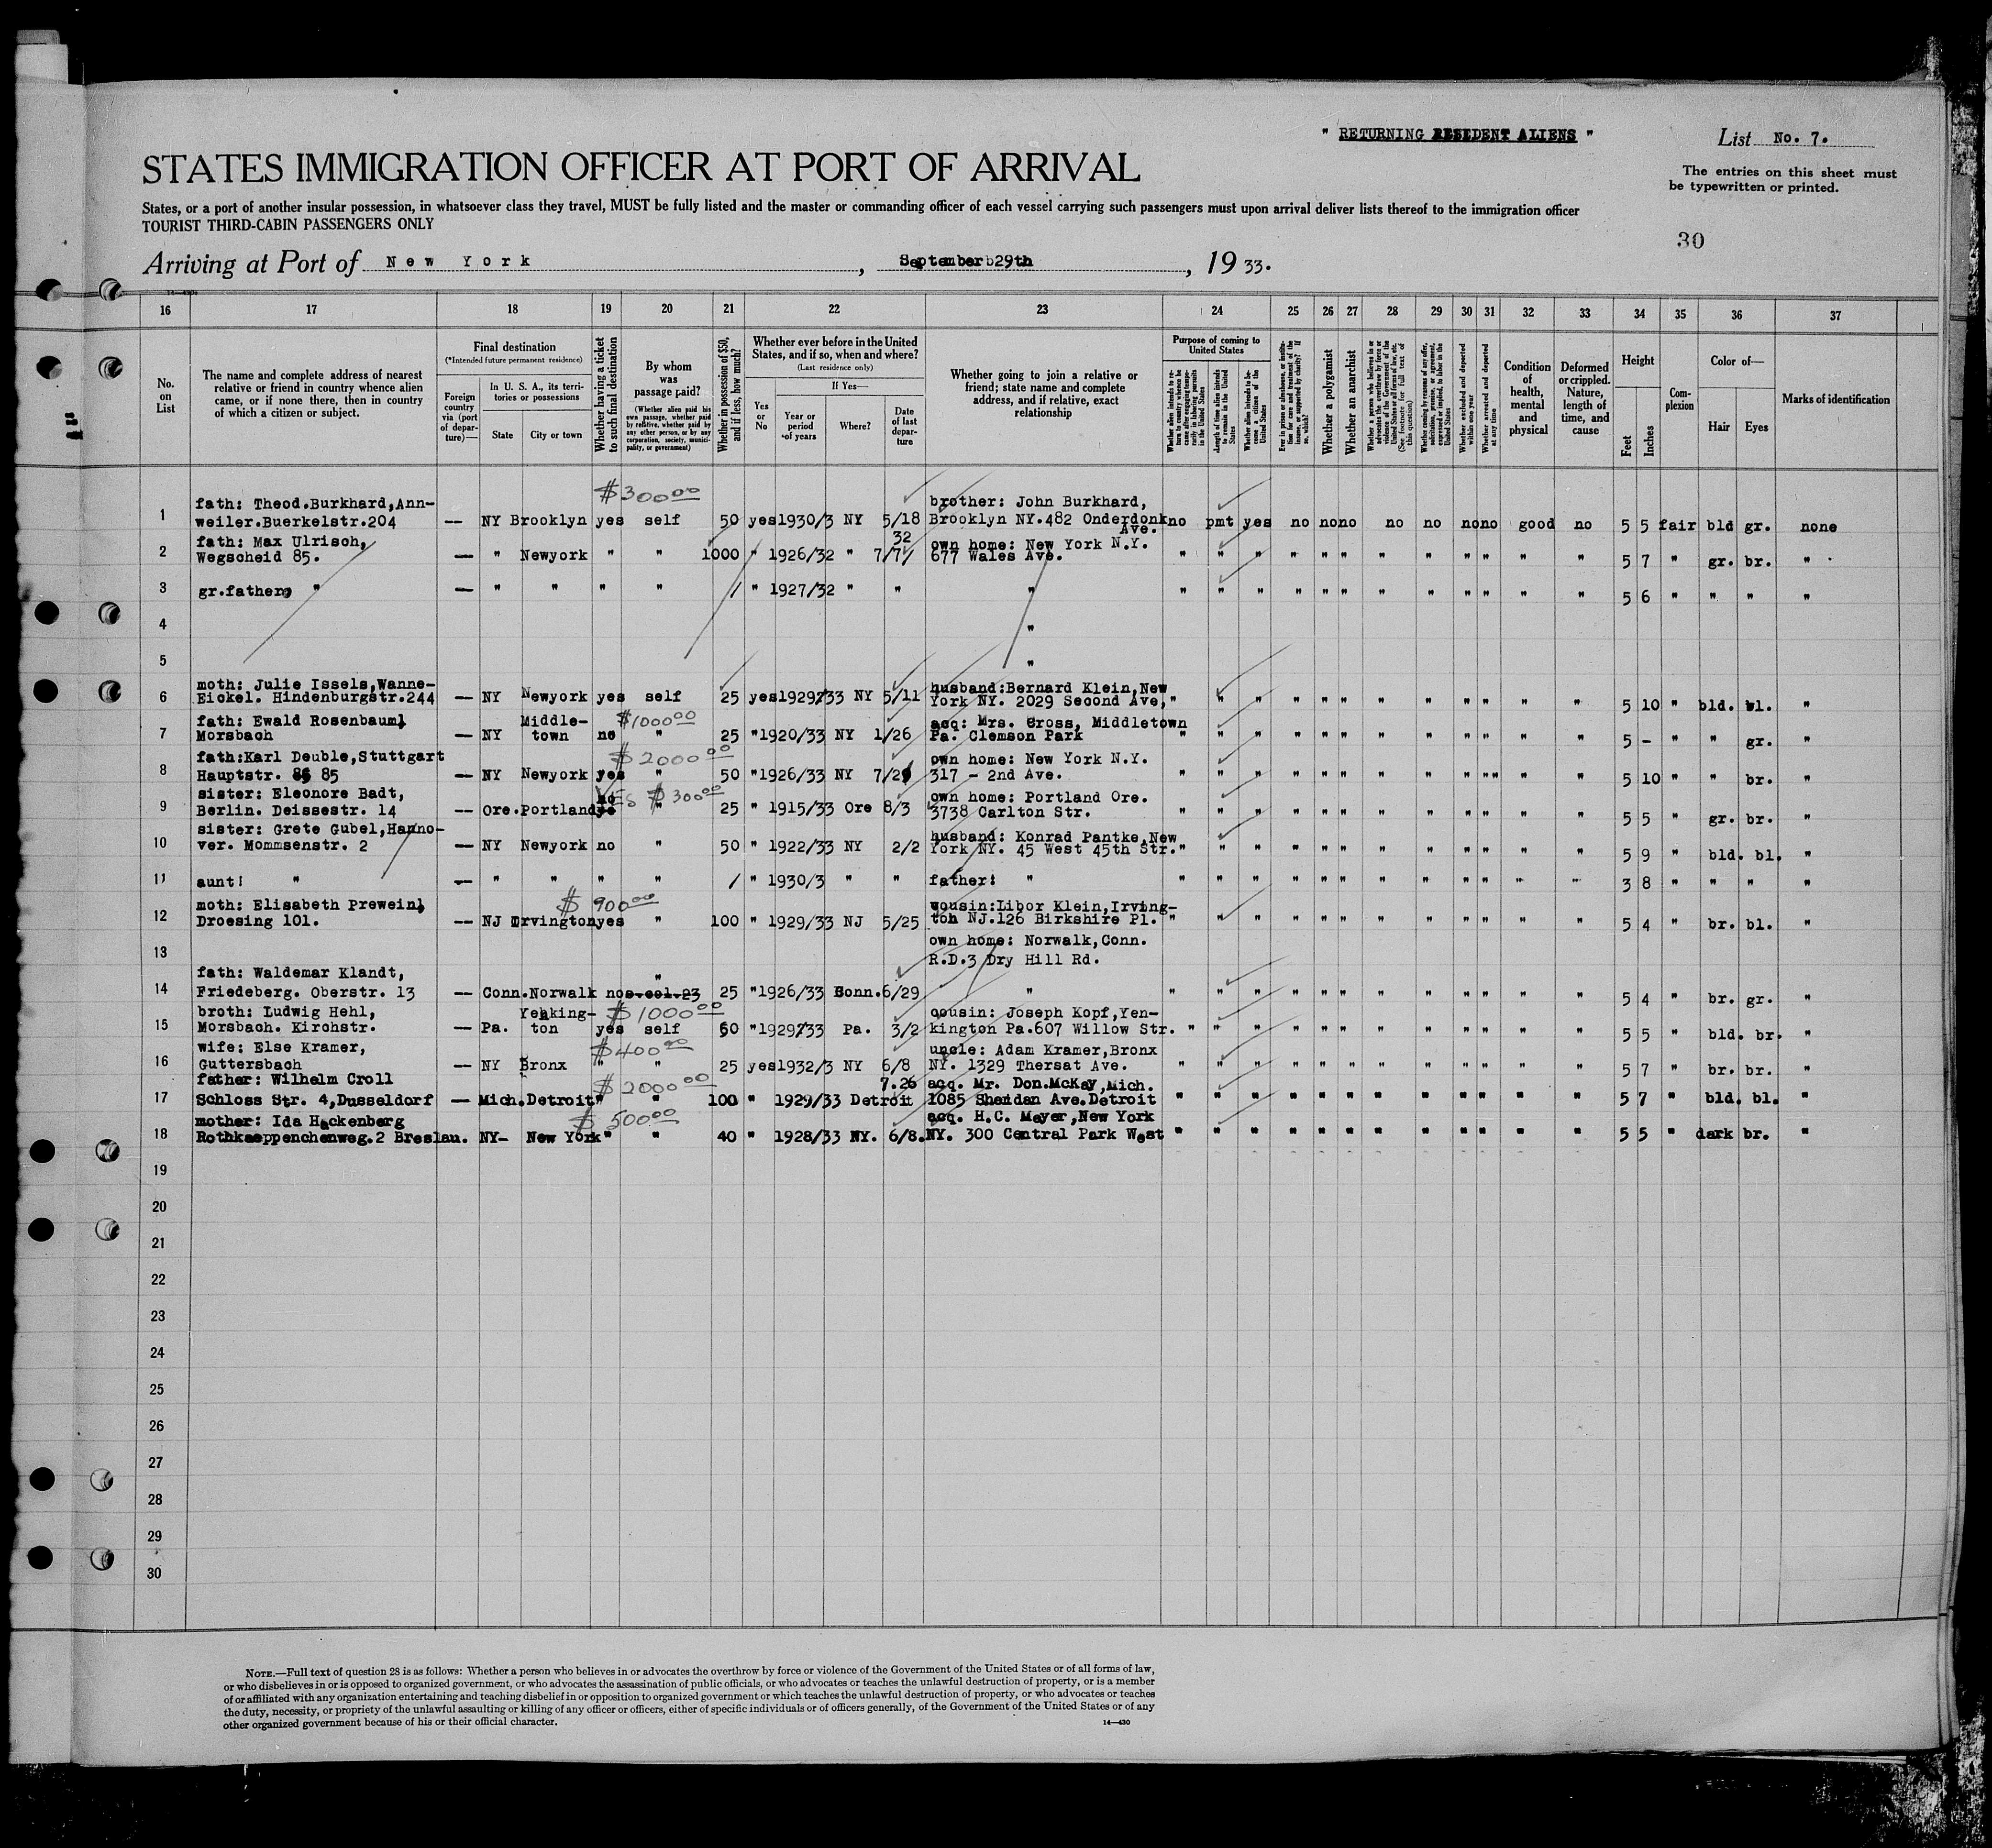 " RETURNING RESEDENT ALIENS "
List No. 7.
STATES IMMIGRATION OFFICER AT PORT OF ARRIVAL
The entries on this sheet must
be typewritten or printed.
States, or a port of another insular possession, in whatsoever class they travel, MUST be fully listed and the master or commanding officer of each vessel carrying such passengers must upon arrival deliver lists thereof to the immigration officer
TOURIST THIRD-CABIN PASSENGERS ONLY
30
Arriving at Port of New York, September 29th, 1933.
16 17 18 19 20 21 22 23 24 25 26 27 28 29 30 31 32 33 34 35 36 37
No. on List
The name and complete address of nearest
relative or friend in country whence alien
came, or if none there, then in country
of which a citizen or subject.
Final destination
(*Intended future permanent residence)
Foreign country via (port of departure)—
In U. S. A., its territories or possessions
State
City or town
Whether having a ticket to such final destination
By whom was passage paid?
(Whether alien paid his own passage, whether paid by relative, whether paid by any other person, or by any corporation, society, municipality, or government)
Whether in possession of $50, and if less, how much?
Whether ever before in the United States, and if so, when and where?
(Last residence only)
Yes or No
If Yes—
Year or period of years
Where?
Date of last departure
Whether going to join a relative or
friend; state name and complete
address, and if relative, exact
relationship
Purpose of coming to United States
Length of time alien intends to remain in the United States
Whether alien intends to become a citizen of the United States
Whether a polygamist
Whether an anarchist
(See footnote for full text of this question)
Whether arrested and deported at any time
Condition of health, mental and physical
Deformed or crippled. Nature, length of time, and cause
Height
Feet
Inches
Complexion
Color of—
Hair
Eyes
Marks of identification
$300 00
1 fath: Theod.Burkhard,Ann-
weiler.Buerkelstr.204 — NY Brooklyn yes self 50 yes 1930/3 NY 5/18 32 brother: John Burkhard,
Brooklyn NY.482 Onderdonk Ave. no pmt yes no no no no no no no good no 5 5 fair bld gr. none
2 fath: Max Ulrisch,
Wegscheid 85. — " Newyork " " 1000 " 1926/32 " 7/7 own home: New York N.Y.
677 Wales Ave. " " " " " " " " " " " " 5 7 " gr. br. "
3 gr.father, " — " " " " / " 1927/32 " " " " " " " " " " " " " " " 5 6 " " " "
4 "
5 "
6 moth: Julie Issels,Wanne-
Eickel. Hindenburgstr.244 — NY Newyork yes self 25 yes 1929/33 NY 5/11 husband:Bernard Klein,New
York NY. 2029 Second Ave, " " " " " " " " " " " " 5 10 " bld. bl. "
7 fath: Ewald Rosenbaum,
Morsbach — NY Middle-
town no $1000 00 " 25 " 1920/33 NY 1/26 acq: Mrs. Cross, Middletown
Pa. Clemson Park " " " " " " " " " " " " 5 - " " gr. "
8 fath:Karl Deuble,Stuttgart
Hauptstr. 85 — NY Newyork yes $2000 00 " 50 " 1926/33 NY 7/2 own home: New York N.Y.
317 - 2nd Ave. " " " " " " " " " " " " 5 10 " " br. "
9 sister: Eleonore Badt,
Berlin. Deissestr. 14 — Ore. Portland no YES $300 00 " 25 " 1915/33 Ore 8/3 own home: Portland Ore.
3738 Carlton Str. " " " " " " " " " " " " 5 5 " gr. br. "
10 sister: Grete Gubel,Hanno-
ver. Mommsenstr. 2 — NY Newyork no " 50 " 1922/33 NY 2/2 husband: Konrad Pantke,New
York NY. 45 West 45th Str. " " " " " " " " " " " " 5 9 " bld. bl. "
11 aunt: " — " " " " / " 1930/3 " " father: " " " " " " " " " " " " " 3 8 " " " "
12 moth: Elisabeth Prewein,
Droesing 101. — NJ Irvington yes $900 00 " 100 " 1929/33 NJ 5/25 cousin:Libor Klein,Irving-
ton NJ.126 Birkshire Pl. " " " " " " " " " " " " 5 4 " br. bl. "
13 own home: Norwalk,Conn.
R.D.3 Dry Hill Rd.
14 fath: Waldemar Klandt,
Friedeberg. Oberstr. 13 — Conn. Norwalk no " s.col.23 25 " 1926/33 Conn. 6/29 " " " " " " " " " " " " " 5 4 " br. gr. "
15 broth: Ludwig Hehl,
Morsbach. Kirchstr. — Pa. Yenking-
ton yes $1000 00 self 60 " 1929/33 Pa. 3/2 cousin: Joseph Kopf,Yen-
kington Pa.607 Willow Str. " " " " " " " " " " " " 5 5 " bld. br. "
16 wife: Else Kramer,
Guttersbach — NY Bronx " $400 00 " 25 yes 1932/3 NY 6/8 uncle: Adam Kramer,Bronx
NY. 1329 Thersat Ave. " " " " " " " " " " " " 5 7 " br. br. "
17 father: Wilhelm Croll
Schloss Str. 4,Dusseldorf — Mich. Detroit " $2000 00 " 100 " 1929/33 Detroit 7.26 acq. Mr. Don.McKay,Mich.
1085 Sheridan Ave.Detroit " " " " " " " " " " " " 5 7 " bld. bl. "
18 mother: Ida Hackenberg
Rothkaeppchenweg.2 Breslau. NY- New York " $500 00 " 40 " 1928/33 NY. 6/8. acq. H.C. Meyer,New York
NY. 300 Central Park West " " " " " " " " " " " " 5 5 " dark br. "
19
20
21
22
23
24
25
26
27
28
29
30
NOTE.—Full text of question 28 is as follows: Whether a person who believes in or advocates the overthrow by force or violence of the Government of the United States or of all forms of law,
or who disbelieves in or is opposed to organized government, or who advocates the assassination of public officials, or who advocates or teaches the unlawful destruction of property, or is a member
of or affiliated with any organization entertaining and teaching disbelief in or opposition to organized government or which teaches the unlawful destruction of property, or who advocates or teaches
the duty, necessity, or propriety of the unlawful assaulting or killing of any officer or officers, either of specific individuals or of officers generally, of the Government of the United States or of any
other organized government because of his or their official character.
14—430